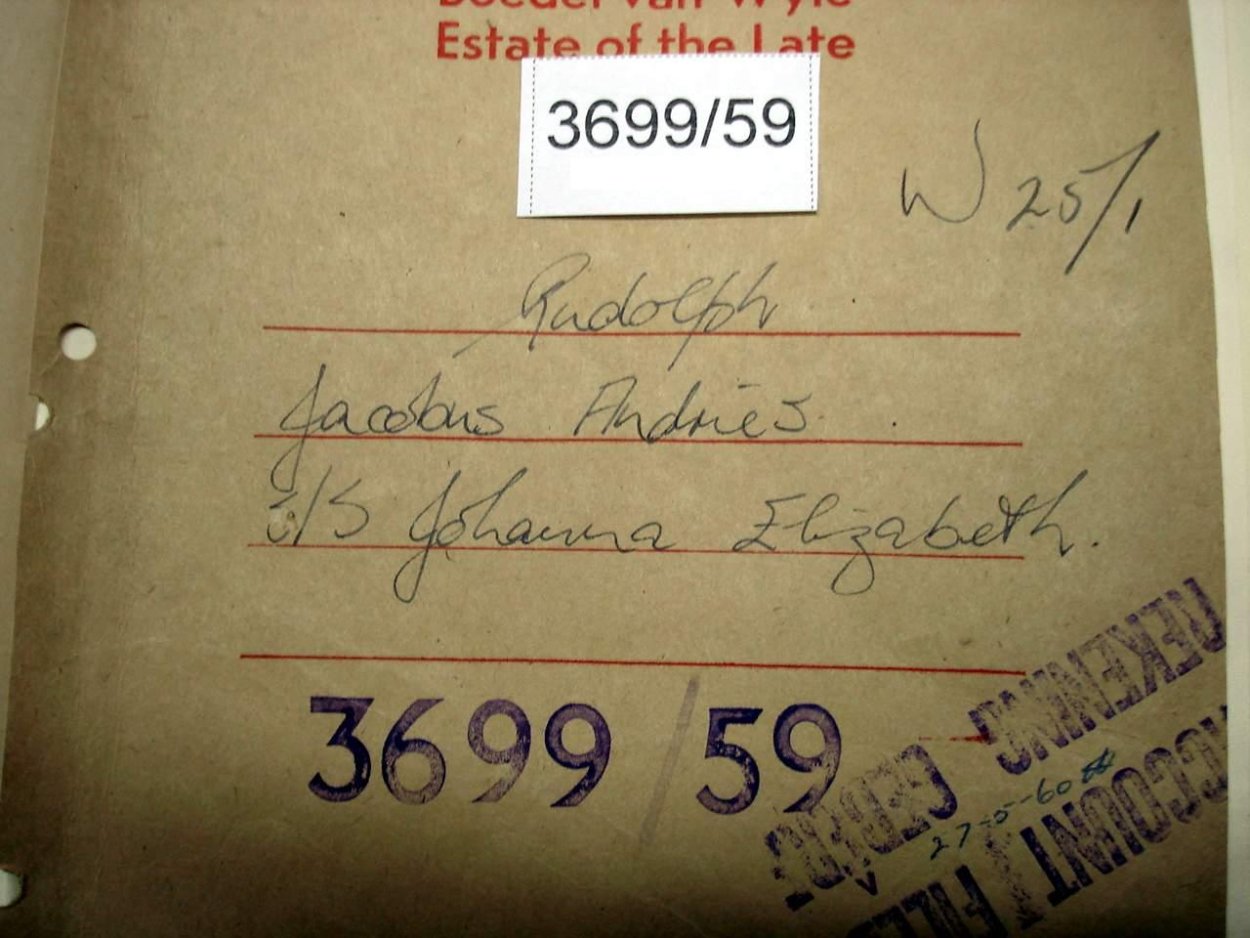 Boedel van Wyle
Estate of the Late
3699/59
W 25/1
Rudolph
Jacobus Andries
s/s Johanna Elizabeth.
3699/59
REKENING
ACCOUNT FILED
27-5-60